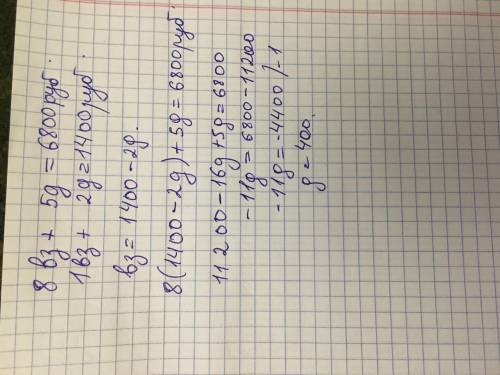 8 вз + 5д = 6800руб.
1вз + 2д = 1400руб.
вз = 1400 - 2д.
8(1400 - 2д) + 5д = 6800руб.
11200 - 16д + 5д = 6800
-11д = 6800 - 11200
-11д = -4400 /-1
д = 400.